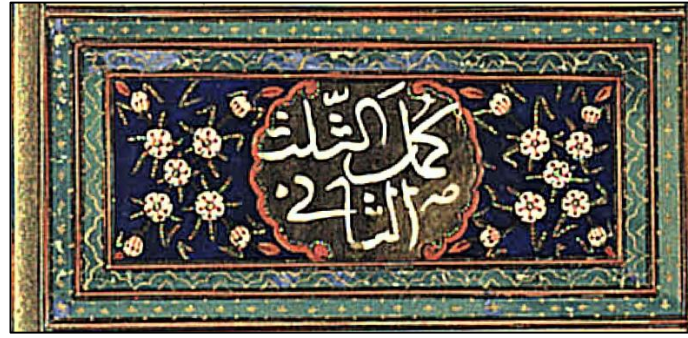 كمل الثلث
الثاني